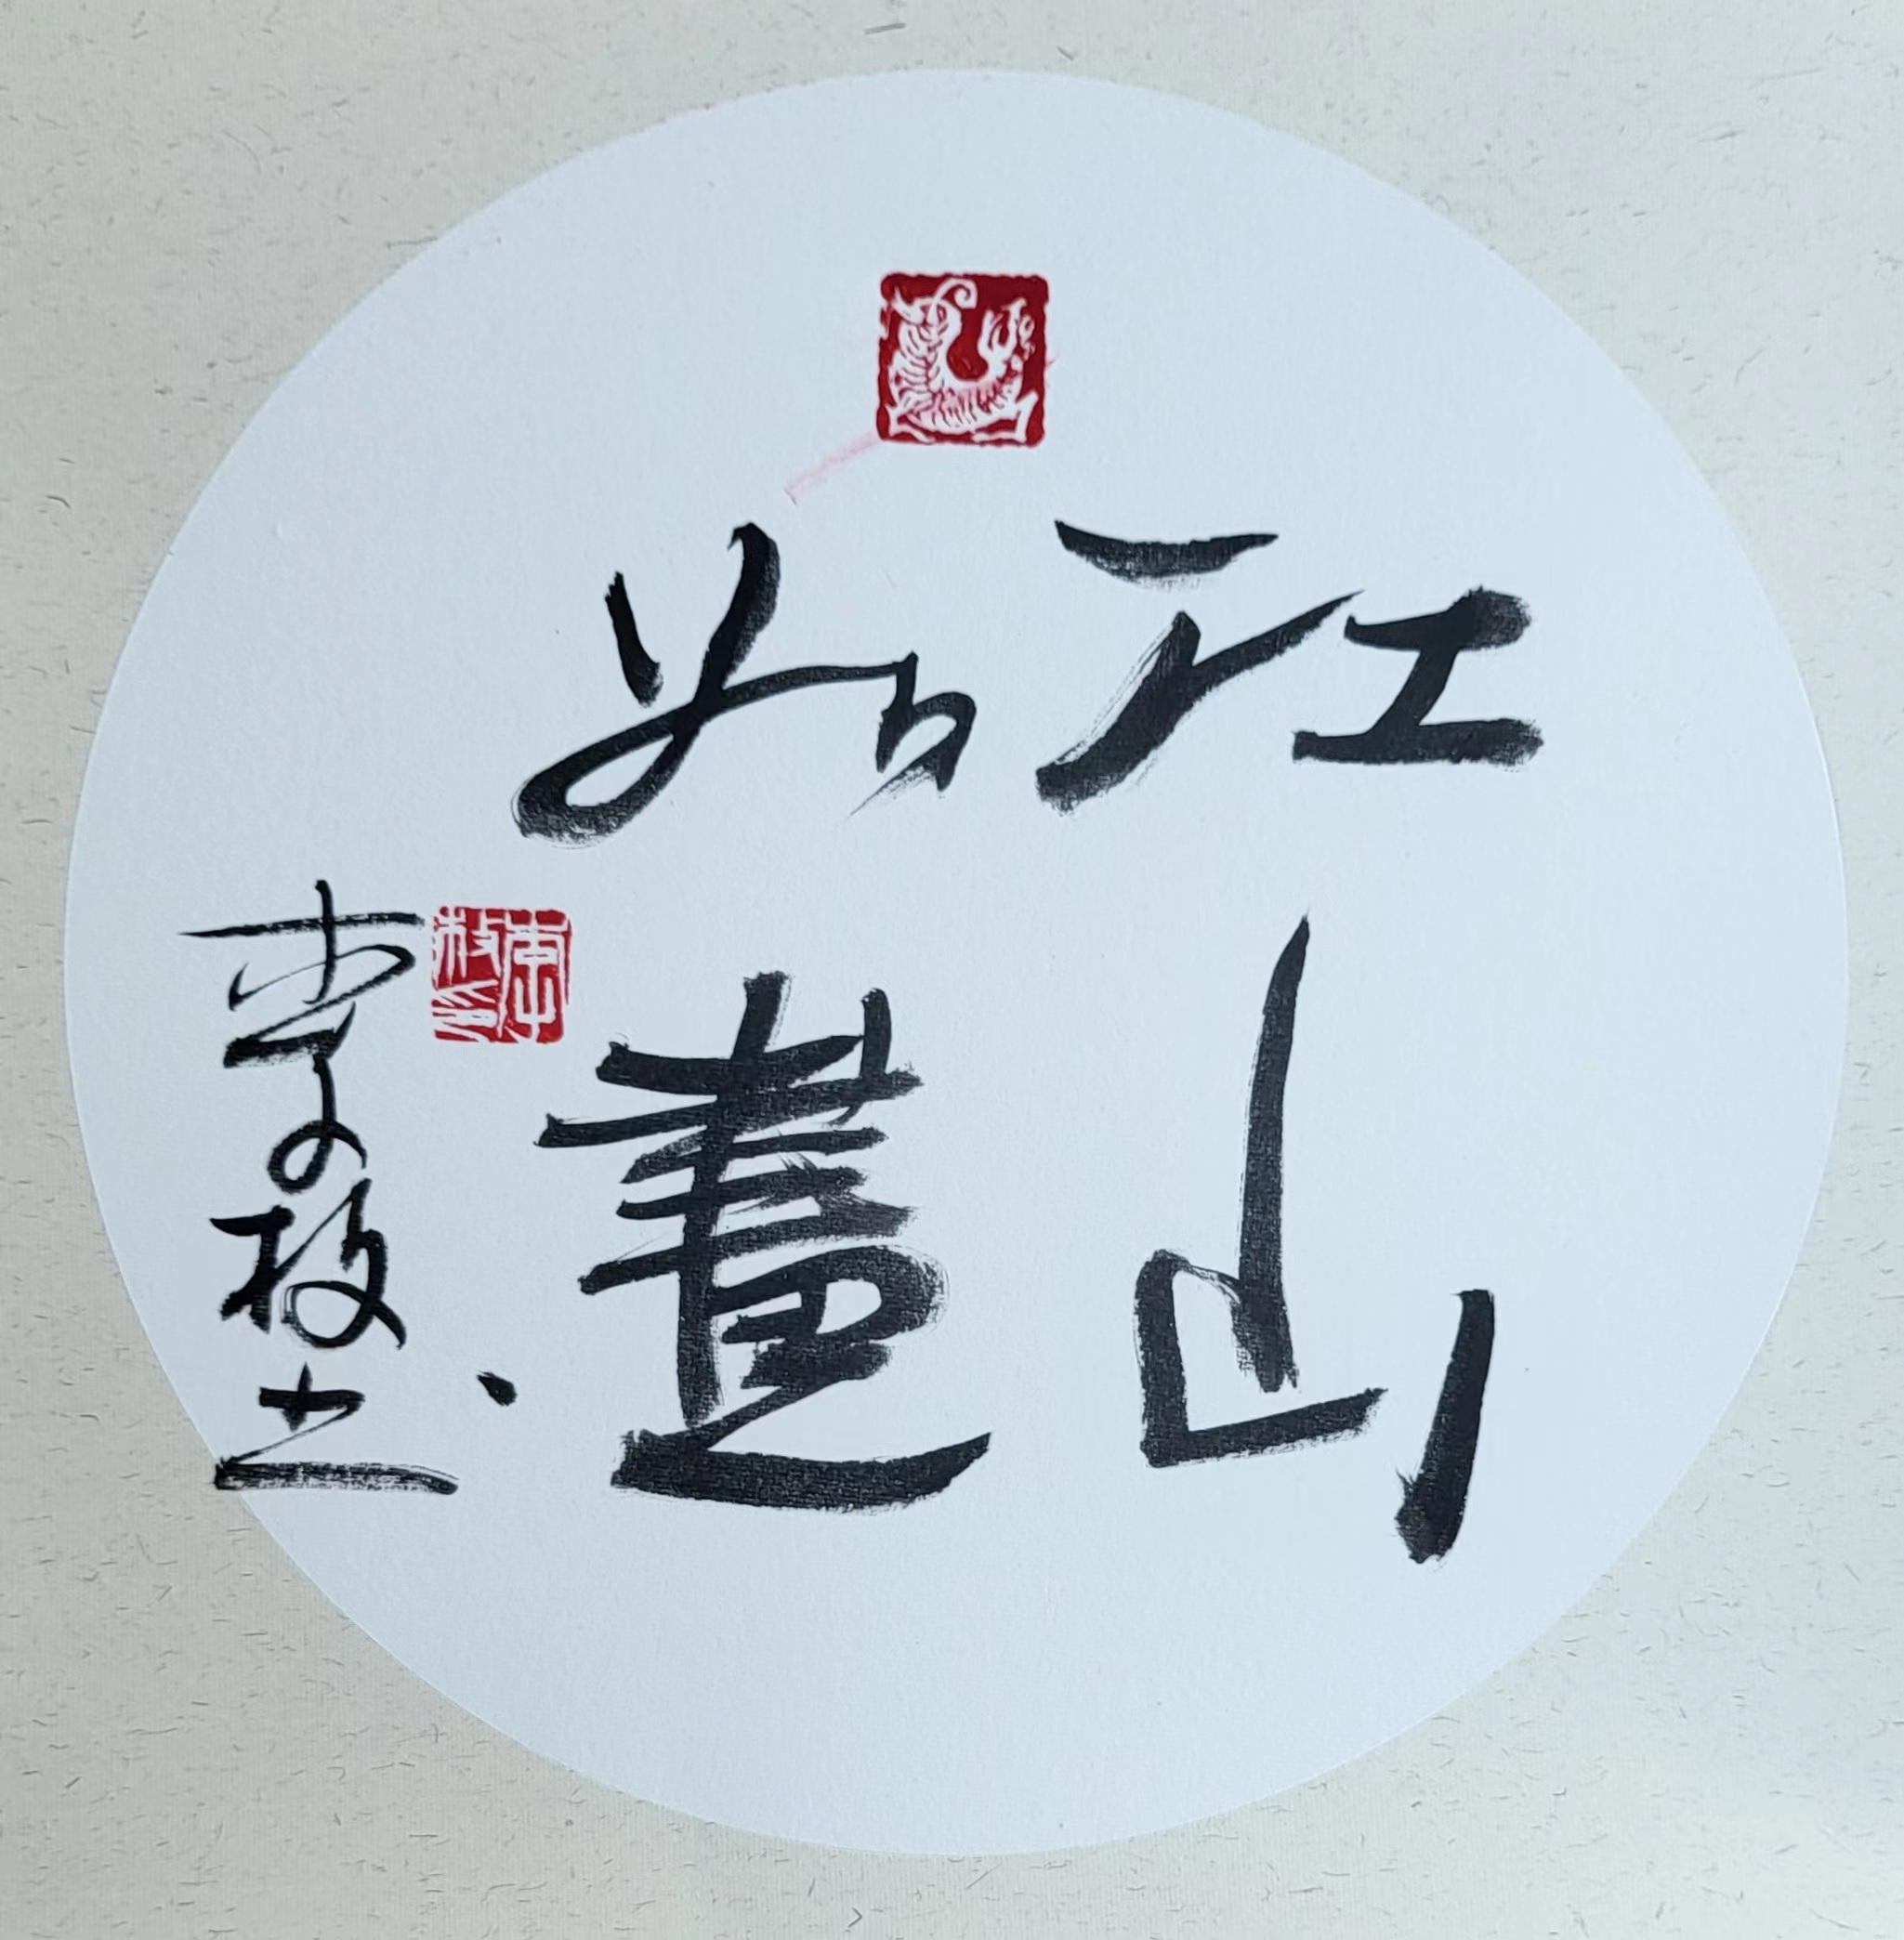 江山
如畫
李枚书
李枚印